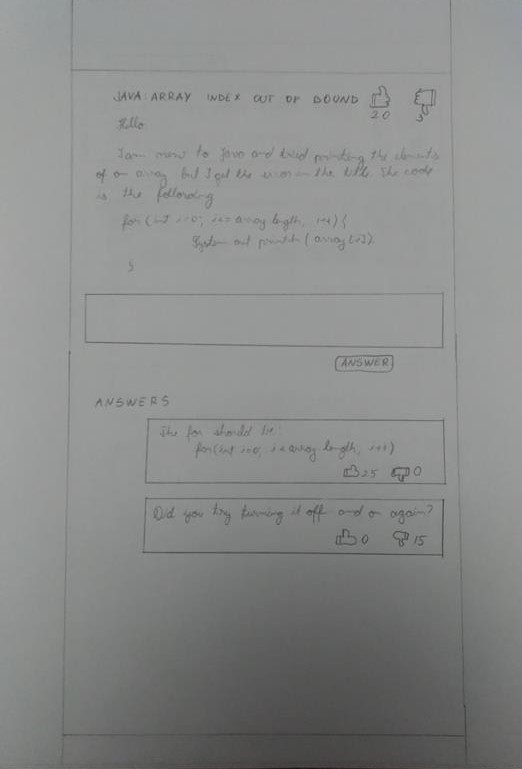 JAVA: ARRAY INDEX OUT OF BOUND
20 5
Hello
I am new to Java and tried printing the elements
of an array but I get the error in the title. The code
is the following
for (int i=0; i<= array length, i++) {
System out println ( array [i]).
}
ANSWER
ANSWERS
The for should be:
for (int i=0; i < array length, i++)
25 0
Did you try turning it off and on again?
0 15